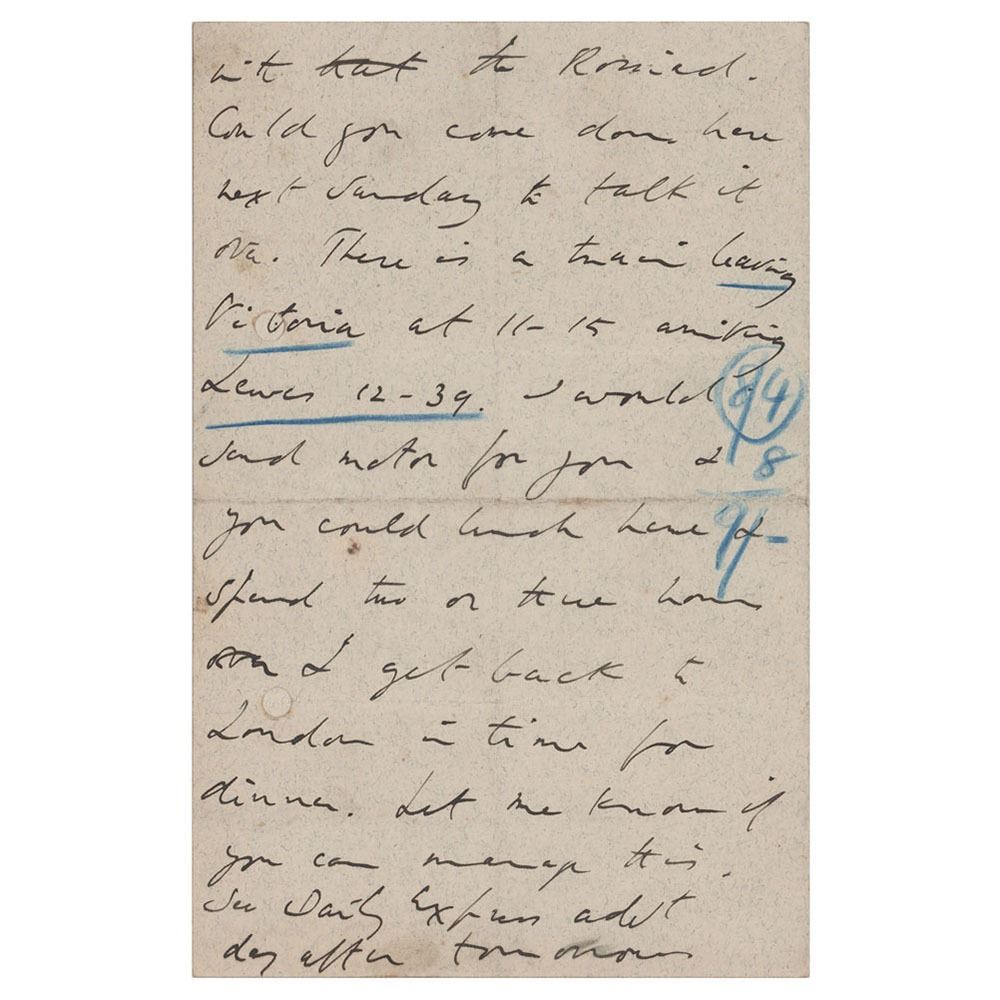 with that the Rosiad.
Could you come down here
next Sunday to talk it
over. There is a train leaving
Victoria at 11-15 arriving
Lewes 12-39. I would
send motor for you &
you could lunch here &
spend two or three hours
& get back to
London in time for
dinner. Let me know if
you can manage this.
See Daily Express advt
day after tomorrow
8/4
8
9/-